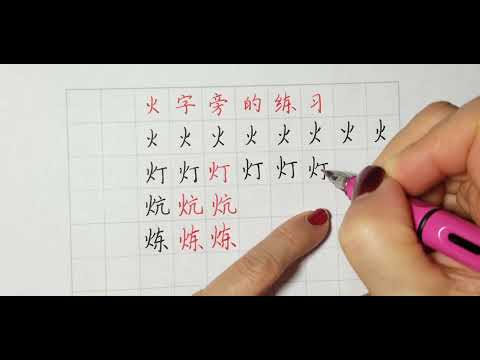 火字旁的练习
火火火火火火火火
灯灯灯灯灯灯
炕炕炕
炼炼炼